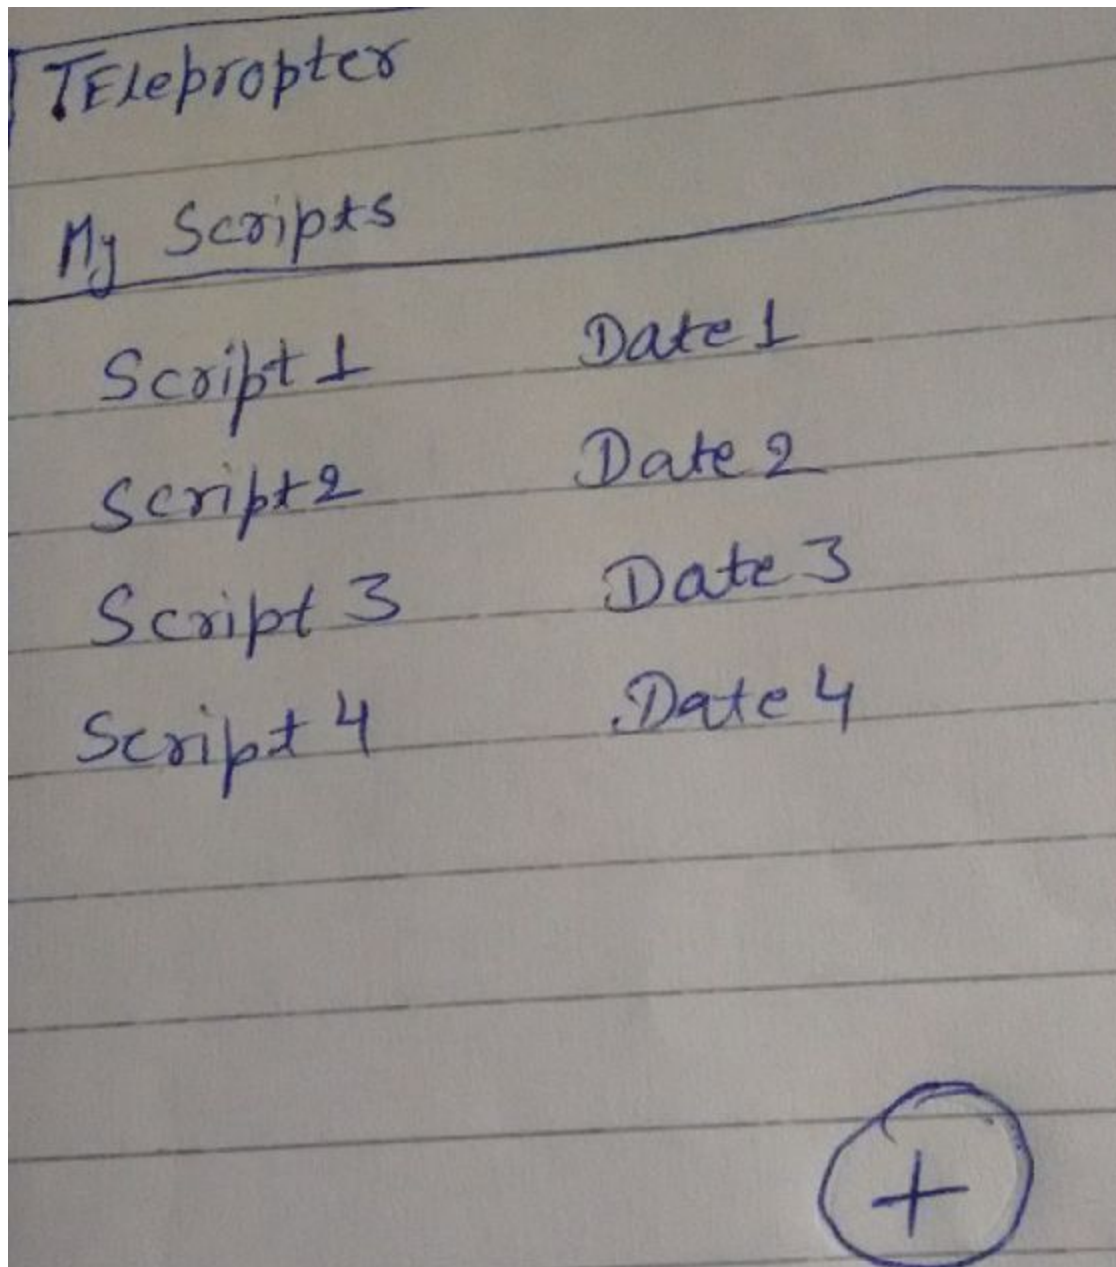 TElepropter
My Scripts
Script 1 Date 1
Script 2 Date 2
Script 3 Date 3
Script 4 Date 4
+